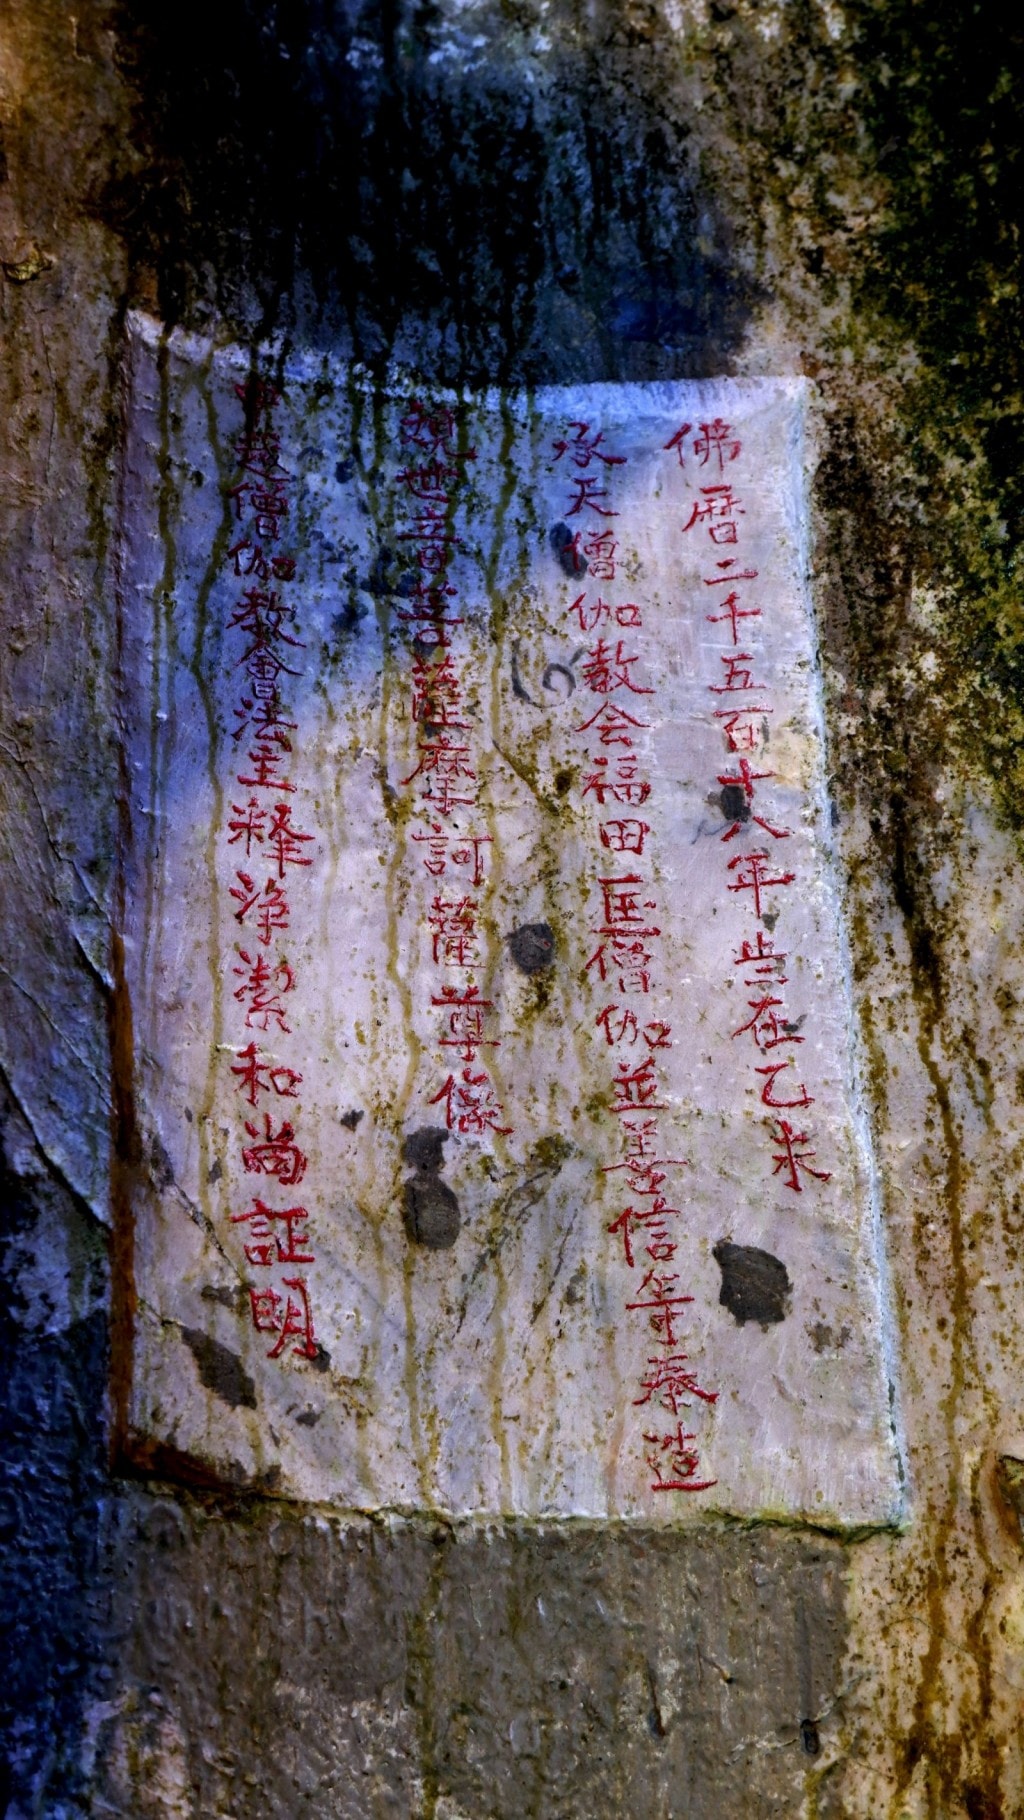 佛暦二千五百十八年岁在乙未
承天僧伽教会福田匡僧伽並善信等奉造
观世音菩薩摩訶薩尊像
中越僧伽教會法主释淨潔和尚証明